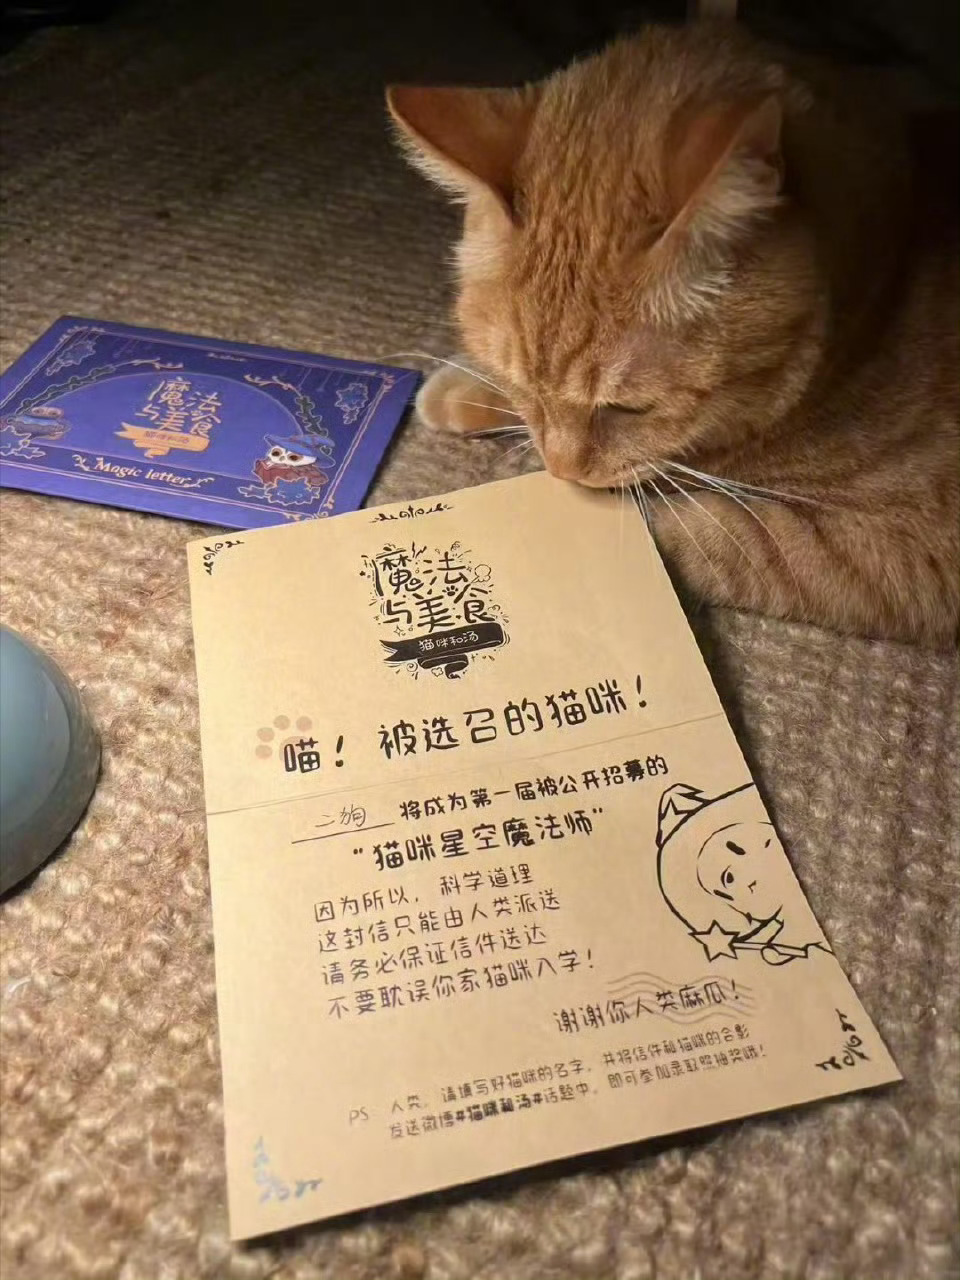 魔法
与美食
猫咪和汤
Magic letter
魔法
与美食
猫咪和汤
喵！被选召的猫咪！
二狗 将成为第一届被公开招募的
“猫咪星空魔法师”
因为所以，科学道理
这封信只能由人类派送
请务必保证信件送达
不要耽误你家猫咪入学！
谢谢你人类麻瓜！
PS：人类，请填写好猫咪的名字，并将信件和猫咪的合影
发送微博#猫咪和汤#话题中，即可参加录取照抽奖哦！